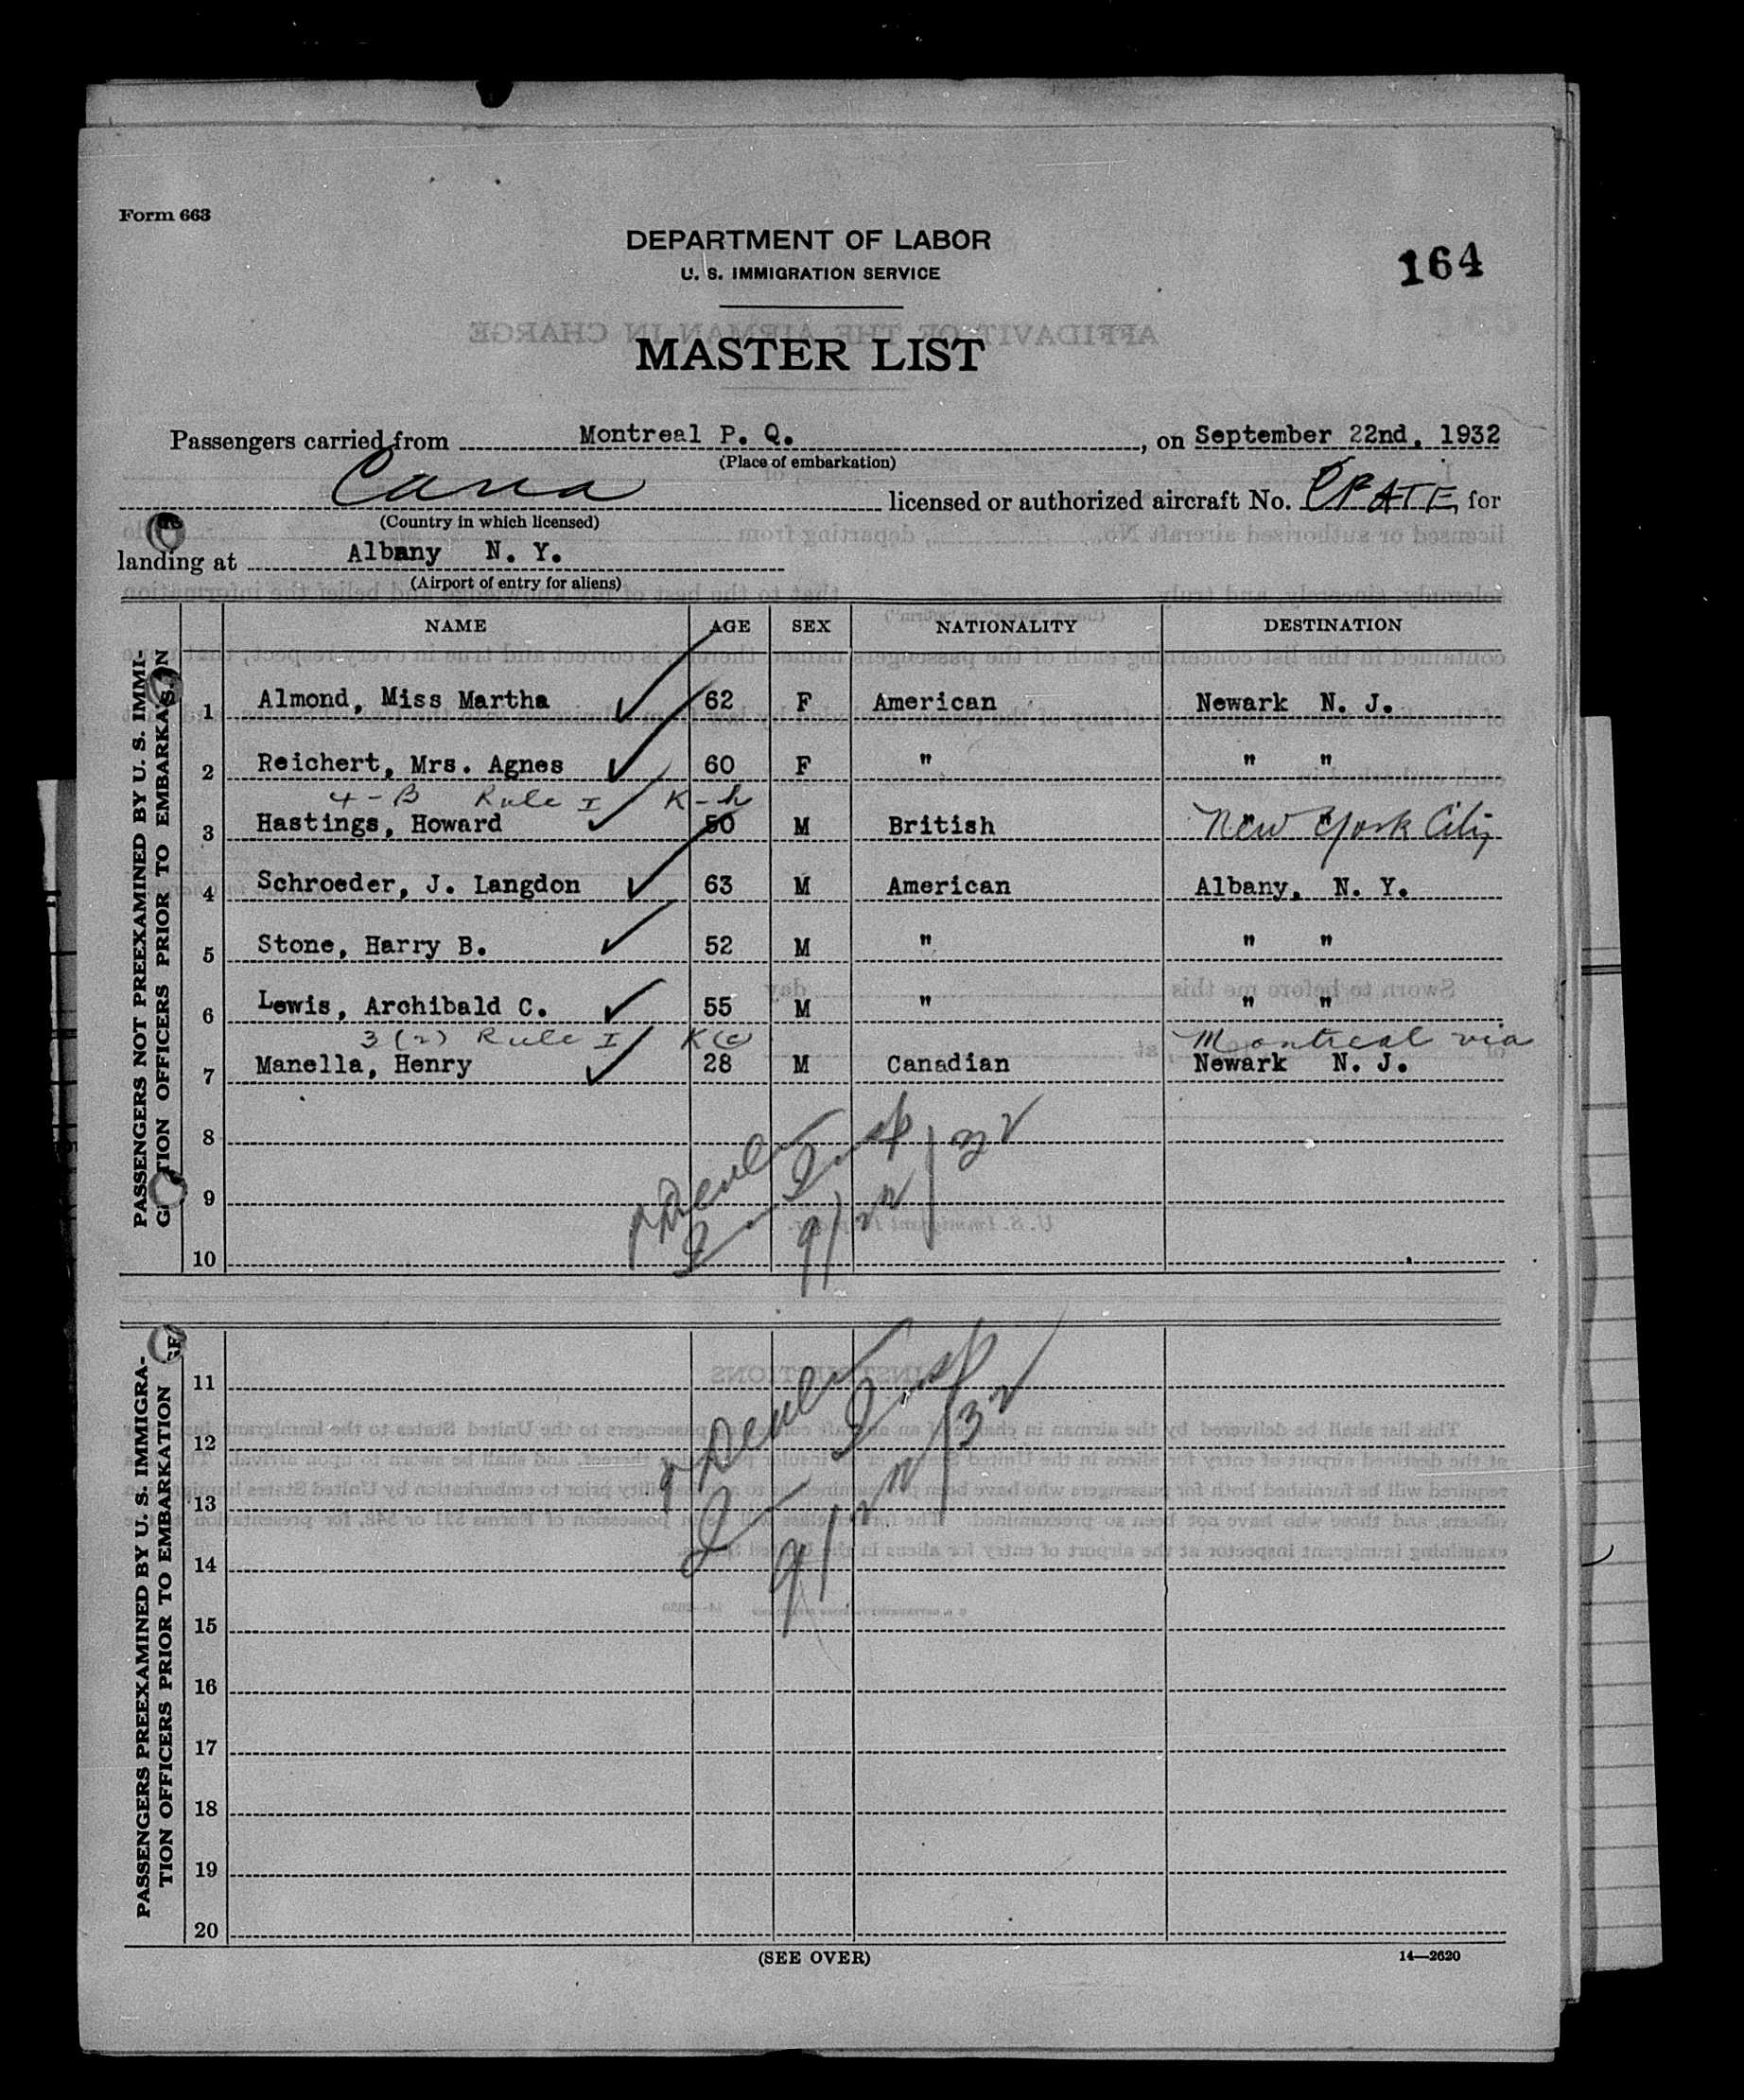 Form 663
DEPARTMENT OF LABOR
U. S. IMMIGRATION SERVICE
164
MASTER LIST
Passengers carried from Montreal P. Q. , on September 22nd, 1932
(Place of embarkation)
Cana licensed or authorized aircraft No. for
(Country in which licensed)
landing at Albany N. Y.
(Airport of entry for aliens)
NAME AGE SEX NATIONALITY DESTINATION
PASSENGERS NOT PREEXAMINED BY U. S. IMMI-
OFFICERS PRIOR TO
1 Almond, Miss Martha 62 F American Newark N. J.
2 Reichert, Mrs. Agnes 60 F " " "
4-B Rule I K-h
3 Hastings, Howard 50 M British New York City
4 Schroeder, J. Langdon 63 M American Albany, N. Y.
5 Stone, Harry B. 52 M " " "
6 Lewis, Archibald C. 55 M " " "
3 (2) Rule I K(c) Montreal via
7 Manella, Henry 28 M Canadian Newark N. J.
8
9
10
Insp
9/22/32
PASSENGERS PREEXAMINED BY U. S. IMMIGRA-
TION OFFICERS PRIOR TO EMBARKATION
11
12
13
14
15
16
17
18
19
20
Insp
9/22/32
(SEE OVER)
14—2620